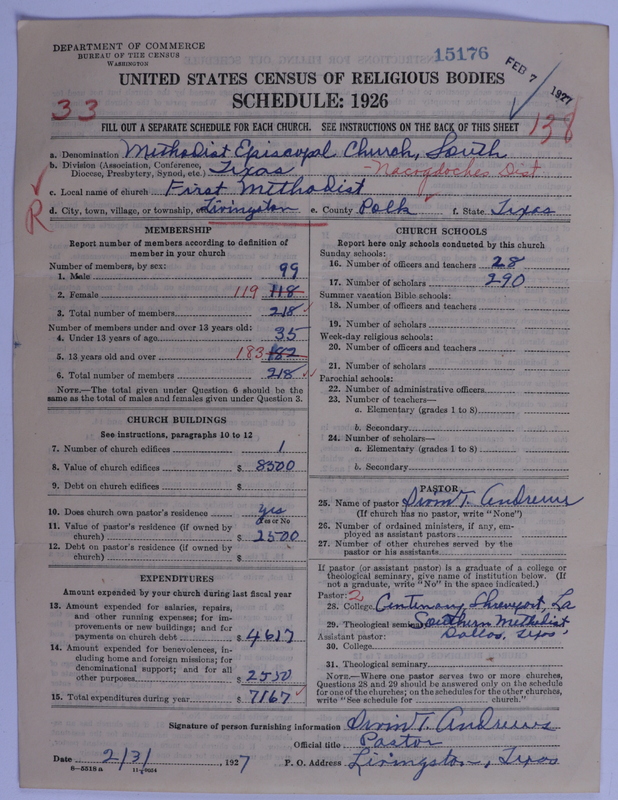 DEPARTMENT OF COMMERCE
BUREAU OF THE CENSUS
WASHINGTON
15176
FEB 7 1927
UNITED STATES CENSUS OF RELIGIOUS BODIES
SCHEDULE: 1926
33
138
FILL OUT A SEPARATE SCHEDULE FOR EACH CHURCH. SEE INSTRUCTIONS ON THE BACK OF THIS SHEET
a. Denomination Methodist Episcopal Church, South
b. Division (Association, Conference, Diocese, Presbytery, Synod, etc.) Texas - Nacogdoches Dist
c. Local name of church First Methodist
R
d. City, town, village, or township, Livingston e. County Polk f. State Texas
MEMBERSHIP
Report number of members according to definition of
member in your church
Number of members, by sex:
1. Male 99
2. Female 119 118
3. Total number of members 218
Number of members under and over 13 years old:
4. Under 13 years of age 35
5. 13 years old and over 183 182
6. Total number of members 218
NOTE.—The total given under Question 6 should be the
same as the total of males and females given under Question 3.
CHURCH BUILDINGS
See instructions, paragraphs 10 to 12
7. Number of church edifices 1
8. Value of church edifices $ 8500
9. Debt on church edifices $
10. Does church own pastor's residence yes
Yes or No
11. Value of pastor's residence (if owned by
church) $ 2500
12. Debt on pastor's residence (if owned by
church) $
EXPENDITURES
Amount expended by your church during last fiscal year
13. Amount expended for salaries, repairs,
and other running expenses; for im-
provements or new buildings; and for
payments on church debt $ 4617
14. Amount expended for benevolences, in-
cluding home and foreign missions; for
denominational support; and for all
other purposes $ 2550
15. Total expenditures during year $ 7167
CHURCH SCHOOLS
Report here only schools conducted by this church
Sunday schools:
16. Number of officers and teachers 28
17. Number of scholars 290
Summer vacation Bible schools:
18. Number of officers and teachers
19. Number of scholars
Week-day religious schools:
20. Number of officers and teachers
21. Number of scholars
Parochial schools:
22. Number of administrative officers
23. Number of teachers—
a. Elementary (grades 1 to 8)
b. Secondary
24. Number of scholars—
a. Elementary (grades 1 to 8)
b. Secondary
PASTOR
25. Name of pastor Irvin T. Andrews
(If church has no pastor, write "None")
26. Number of ordained ministers, if any, em-
ployed as assistant pastors
27. Number of other churches served by the
pastor or his assistants
If pastor (or assistant pastor) is a graduate of a college or
theological seminary, give name of institution below. (If
not a graduate, write "No" in the space indicated.)
Pastor: 2
28. College Centenary, Shreveport, La
29. Theological seminary Southern Methodist
Assistant pastor: Dallas, Texas
30. College
31. Theological seminary
NOTE.—Where one pastor serves two or more churches,
Questions 28 and 29 should be answered only on the schedule
for one of the churches; on the schedules for the other churches,
write "See schedule for church."
Signature of person furnishing information Irvin T. Andrews
Official title Pastor
Date 2/3/ , 1927 P. O. Address Livingston, Texas
6—5518 a